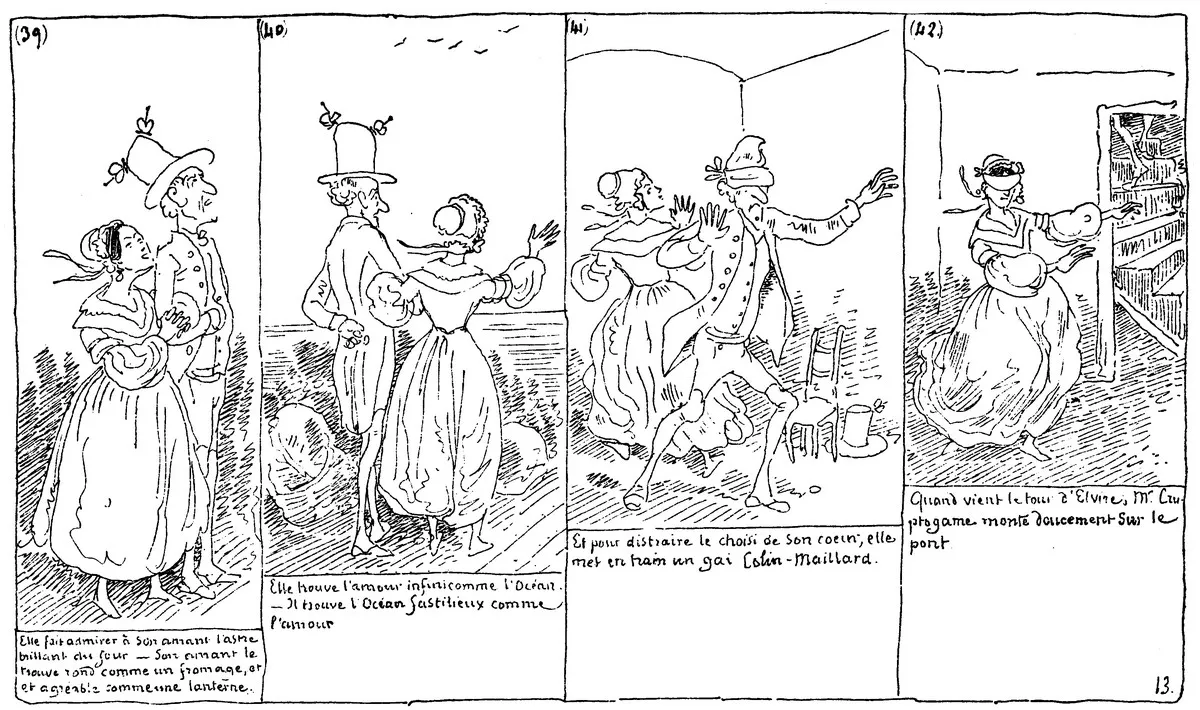 (39)
Elle fait admirer à son amant l'astre
brillant du jour — Son amant le
trouve rond comme un fromage, et
et agréable comme une lanterne.
(40)
Elle trouve l'amour infini comme l'Océan.
— Il trouve l'Océan fastidieux comme
l'amour
(41)
Et pour distraire le choisi de son coeur, elle
met en train un gai Colin-Maillard.
(42)
Quand vient le tour d'Elvire, Mr. Cry-
ptogame monte doucement sur le
pont
13.